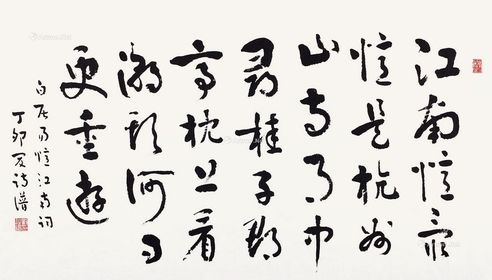 江南憶最
憶是杭州
山寺月中
尋桂子郡
亭枕上看
潮頭何日
更重遊
白居易憶江南詞
丁卯夏